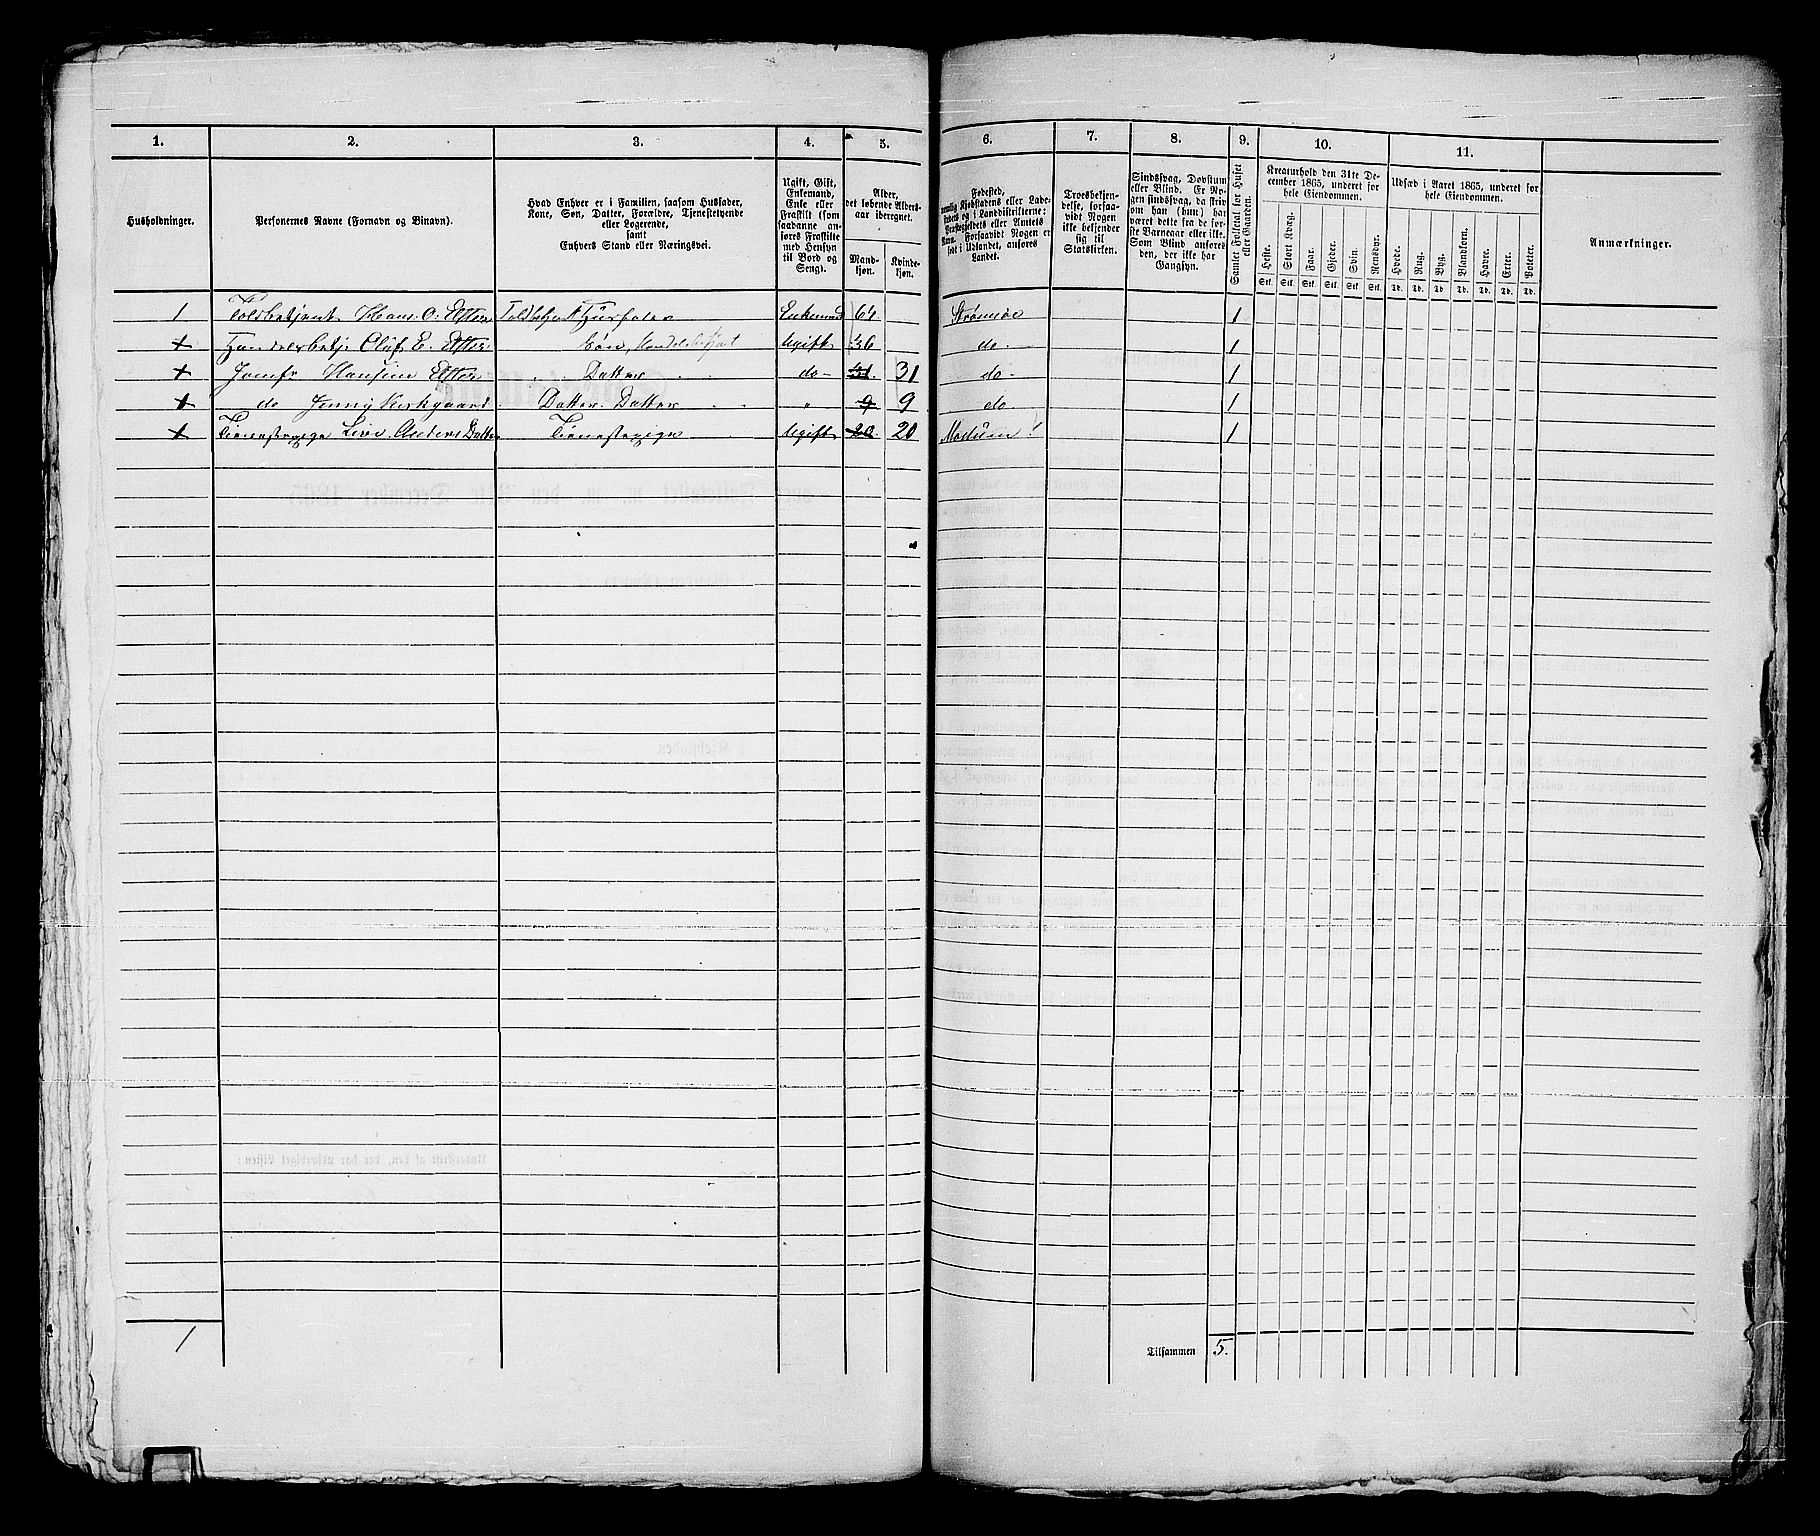 1. 2. 3. 4. 5. 6. 7. 8. 9. 10. 11.
Husholdninger.
Personernes Navne (Fornavn og Binavn).
Hvad Enhver er i Familien, saasom Husfader,
Kone, Søn, Datter, Forældre, Tjenestetyende
eller Logerende,
samt
Enhvers Stand eller Næringsvei.
Ugift, Gift,
Enkemand,
Enke eller
Fraskilt (som
saadanne an-
føres Fraskilte
med Hensyn
til Bord og
Seng).
Alder,
det løbende Alders-
aar iberegnet.
Mand-
kjøn.
Kvinde-
kjøn.
Fødested,
nemlig Kjøbstadens eller Lade-
stedets og i Landdistrikterne:
Præstegjeldets eller Amtets
Navn. Forsaavidt Nogen er
født i Udlandet, anføres
Landet.
Troesbekjen-
delse, forsaa-
vidt Nogen
ikke bekjender
sig til
Statskirken.
Sindssvag, Døvstum
eller Blind. Er No-
gen sindssvag, da skriv
om han (hun) har
været dette fra de før-
ste Barneaar eller ikke.
Som Blind anføres
den, der ikke har
Gangsyn.
Samlet Folketal for Huset
eller Gaarden.
Kreaturhold den 31te De-
cember 1865, underet for
hele Eiendommen.
Heste. Stort Kvæg. Faar. Gjeder. Svin. Rensdyr.
Stk. Stk. Stk. Stk. Stk. Stk.
Udsæd i Aaret 1865, underet for
hele Eiendommen.
Hvede. Rug. Byg. Blandkorn. Havre. Erter. Poteter.
Td. Td. Td. Td. Td. Td. Td.
Anmærkninger.
1 Toldbetjent Hans O. Elster Toldbetjent Huusfader Enkemand 64 Strømsøe 1
1 Handelsbetj. Oluf E. Elster Søn, Handelsbetjent Ugift 36 do 1
1 Jomfr Hansine Elster Datter do 31 31 do 1
1 do Jenny Kirkgaard Datter Datter " 9 9 do 1
1 Tienestepige Live Anders Datter Tienestepige Ugift 20 20 Modum 1
1
Tilsammen 5.